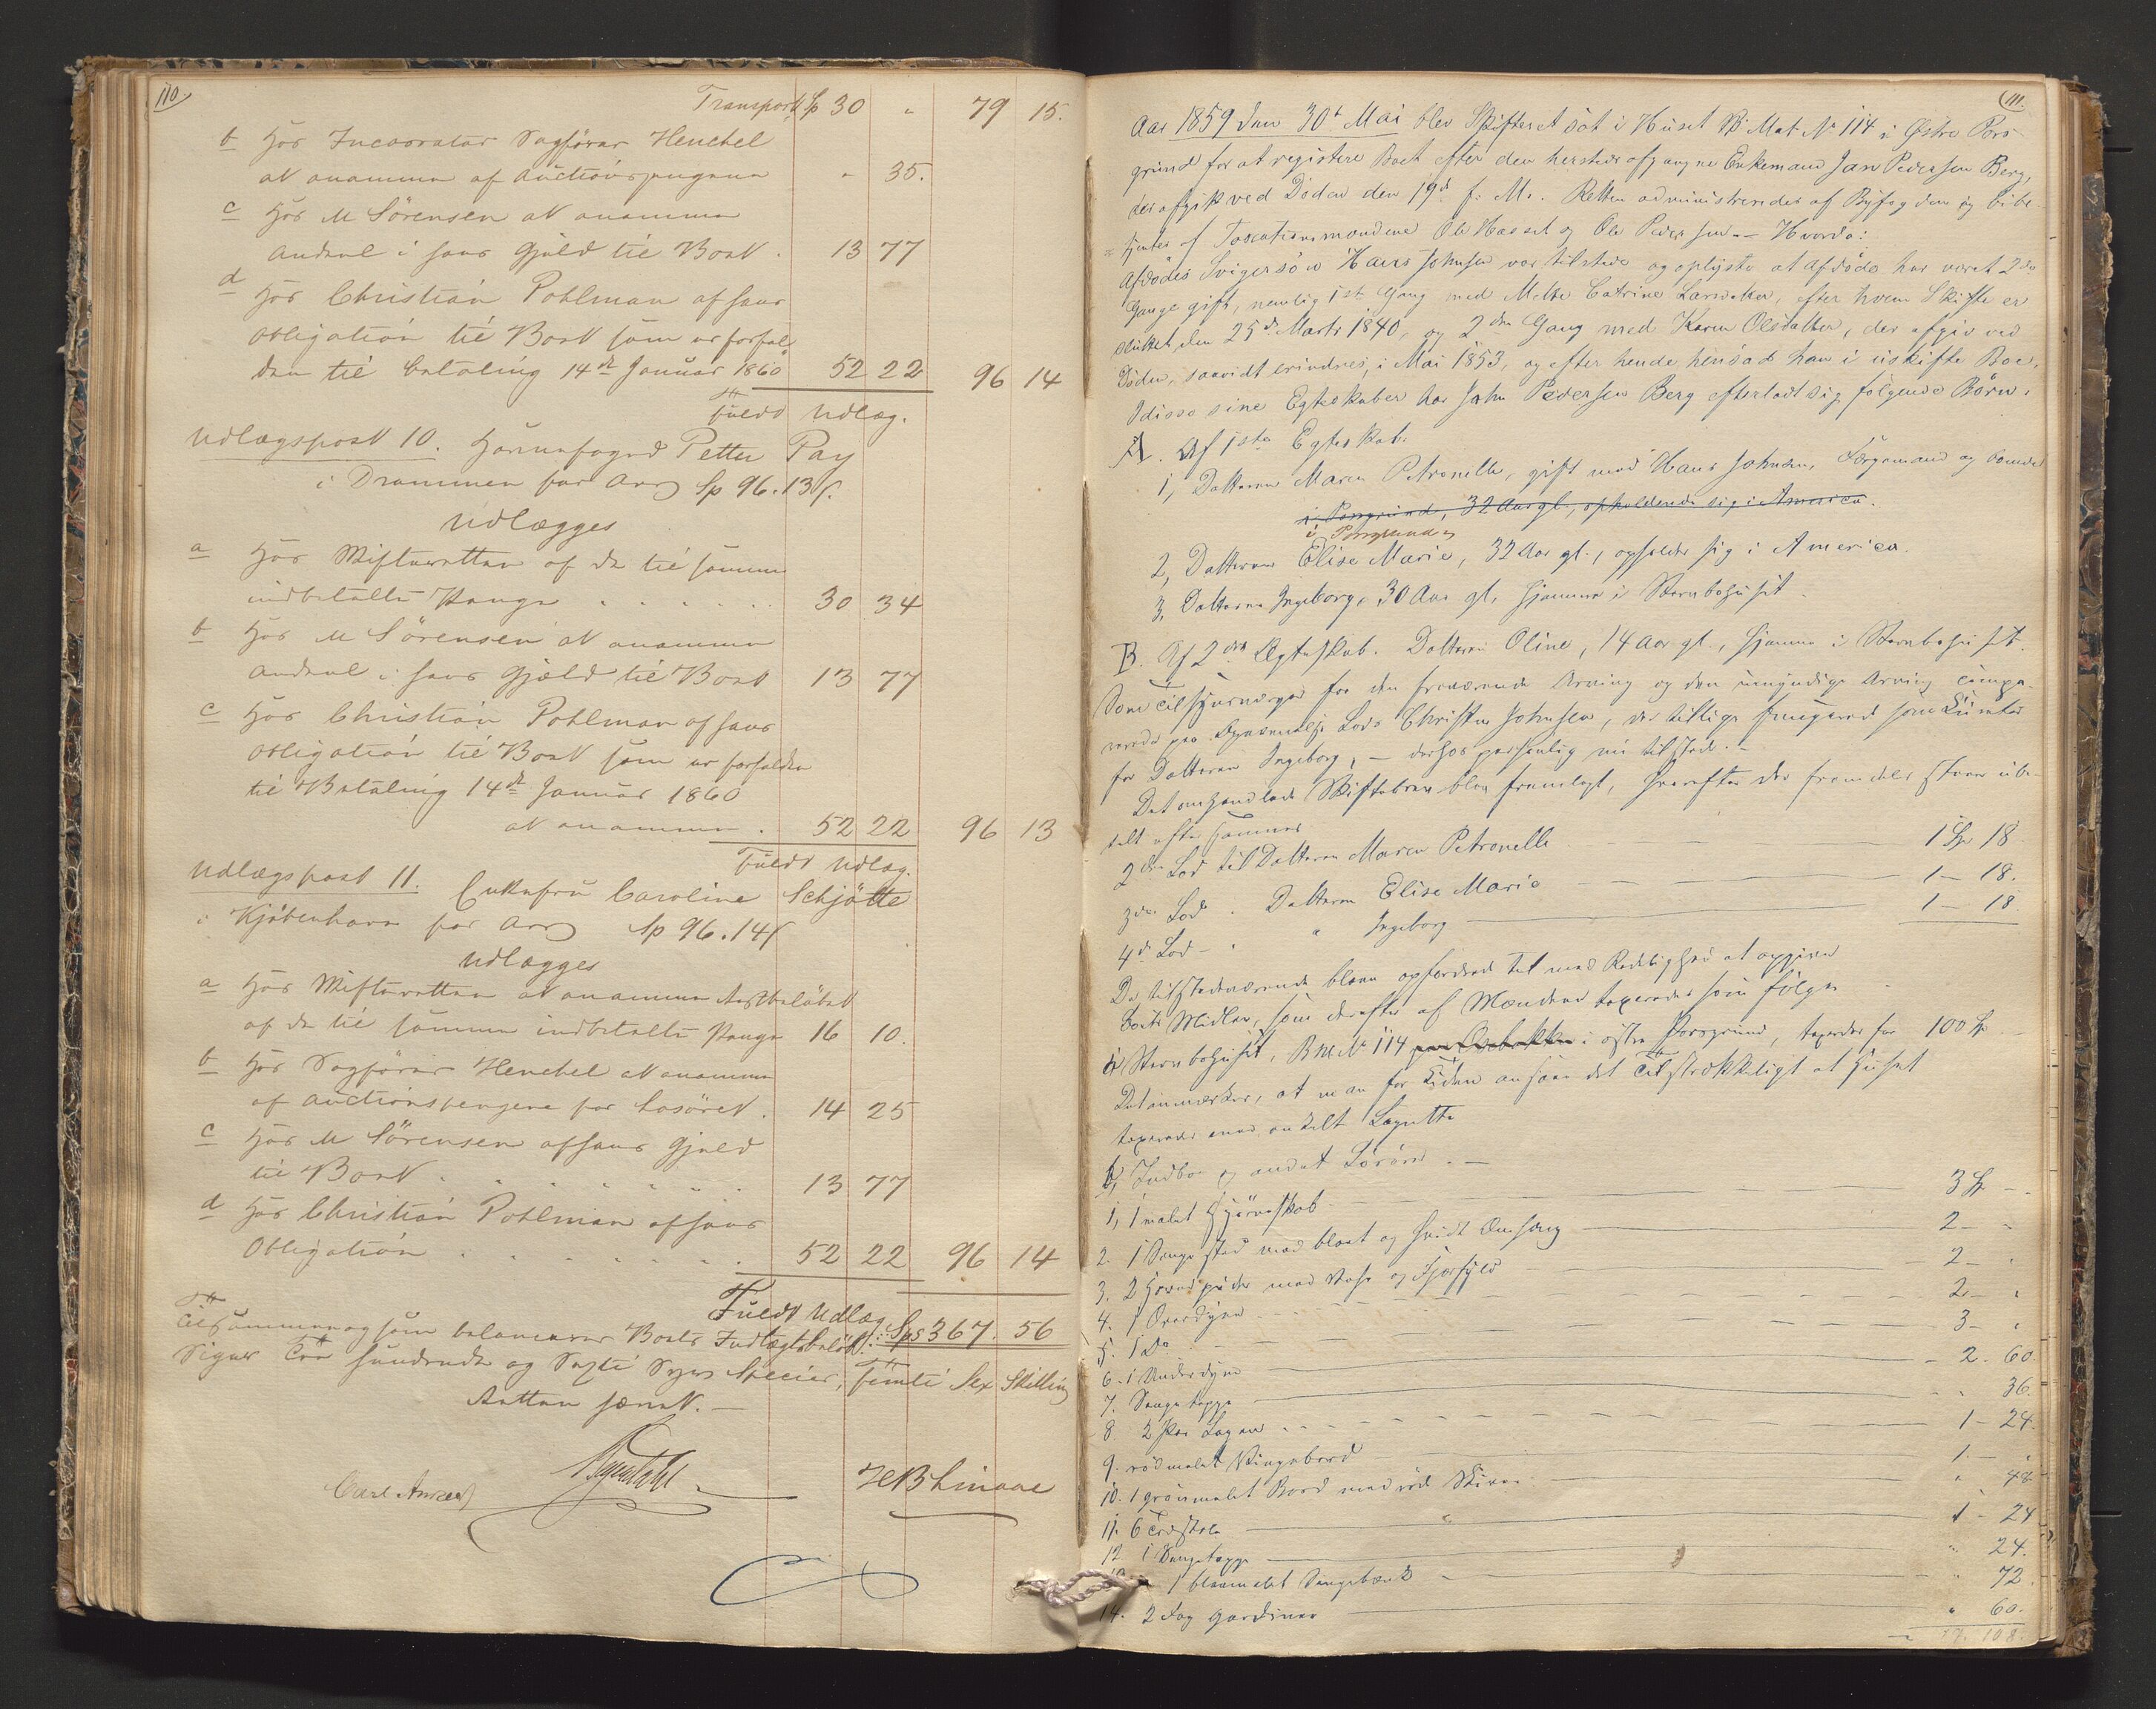 110
Transport Sp 30 " 79 15.
b Hos Incassator Sagförer Henchel
at annamme af Auctionspengene " 35.
c Hos M Sörensen at annamme
Andeel i hans Gjæld til Boet . 13 77
d Hos Christian Pohlman af hans
Obligation til Boet som er forfal-
den til Betaling 14de Januar 1860 52 22 96 14
Fuldt Udlæg.
Udlægspost 10. Havnefoged Petter Pay
i Drammen for Arv Sp 96.13 s.
Udlægges
a Hos Skifteretten af de til samme
indbetalte Penge . . . . . . 30 34
b Hos M Sörensen at annamme
Andeel i hans Gjæld til Boet 13 77
c Hos Christian Pohlman af hans
Obligation til Boet som er forfalden
til Betaling 14de Januar 1860
at annamme . 52 22 96 13
Fuldt Udlæg.
Udlægspost 11. Enkefru Caroline Schjötte
i Kjöbenhavn for Arv Sp 96.14 s
Udlægges
a Hos Skifteretten at annamme Restbelöbet
af de til samme indbetalte Penge 16 10.
b Hos Sagförer Henchel at annamme
af Auctionspengene for Lösöret . 14 25
c Hos M Sörensen af hans Gjæld
til Boet . . . . . . . 13 77
d Hos Christian Pohlman af hans
Obligation . . . . . . . 52 22 96 14
Fuldt Udlæg
Tilsammen og som balancerer Boets Indtægtsbelöb: Sp 367. 56
Siger Tre hundrede og Sexti Syv Species, femti Sex Skilling
Retten hævet. —
HB Linaae
111.
Aar 1859 den 30t Mai blev Skifteret sat i Huset Mat No 114 i Östre Pors-
grund for at registere Boet efter den hersteds afgangne Enkemand Jan Pedersen Berg,
der afgik ved Döden den 19de f. M. Retten administreredes af Byfogden og bibe-
tjentes af Taxationsmændene Ole Hasset og Ole Pedersen. — Hvorda:
Afdödes Svigersön Hans Johnsen var tilstede og oplyste at Afdöde har været 2de
Gange gift, nemlig 1ste Gang med Mette Catrine Larsdatter, efter hvem Skifte er
sluttet den 25de Marts 1840, og 2den Gang med Karen Olsdatter, der afgik ved
Döden, saavidt erindres, i Mai 1853, og efter hende hensad han i uskifte Boe.
I disse sine Egteskaber har John Pedersen Berg efterladt sig fölgende Börn:
A. Af 1ste Egteskab:
1, Datteren Maren Petronelle, gift med Hans Johnsen, Færgemand og boende
i Porsgrund, 32 Aar gl., opholdende sig i America.
i Porsgrund
2, Datteren Elise Marie, 32 Aar gl., opholder sig i America.
3, Datteren Ingeborg, 30 Aar gl, hjemme i Stervbohuset.
B. Af 2det Egteskab. Datteren Oline, 14 Aar gl., hjemme i Stervbohuset.
Som Tilsynsværge for den fraværende Arving og den umyndige Arving compa-
rerede Lods Christen Johnsen, der tillige fungerede som Curator
for Datteren Ingeborg, — derhos personlig nu tilstede. —
Det omhandlede Skiftebrev blev fremlagt, hvorefter der fremdeles staar ube-
talt efter samme
2den Lod til Datteren Maren Petronelle 1 Sp 18
3die Lod " Datteren Elise Marie 1 — 18.
4de Lod — " " Ingeborg 1 — 18.
De tilstedeværende bleve opfordrede til med Redelighed at opgive
Boets Midler, som derefter af Mændene taxeredes som fölger
a, Stervbohuset, B M No 114 i östre Porsgrund, taxeredes for 100 Sp
Det anmærkes, at man for Tiden ansaae det tilstrækkeligt at Huset
taxeredes
b, Indbo og andet Lösöre. —
1, 1 malet Hjörneskab 3 Sp —
2. 1 Sengested med blaat og hvidt Omhæng 2 — "
3. 2 Hovedpuder med Vaar og Fjærfyld 2 — "
4. 1 Overdyne 2 — "
5. 1 Do 3 — "
6. 1 Underdyne 2 . 60.
7. Sengetæppe " 36.
8 2 Par Lagen 1 — 24.
9. rödmalet Klapbord 1. — "
10. 1 grönmalet Bord med röd Skive " 48
11. 6 Træstole 1 — 24
12 1 Sengetæppe " 24.
13 1 blaamalet Sengebænk " 72.
14. 2 Fag Gardiner " 60.